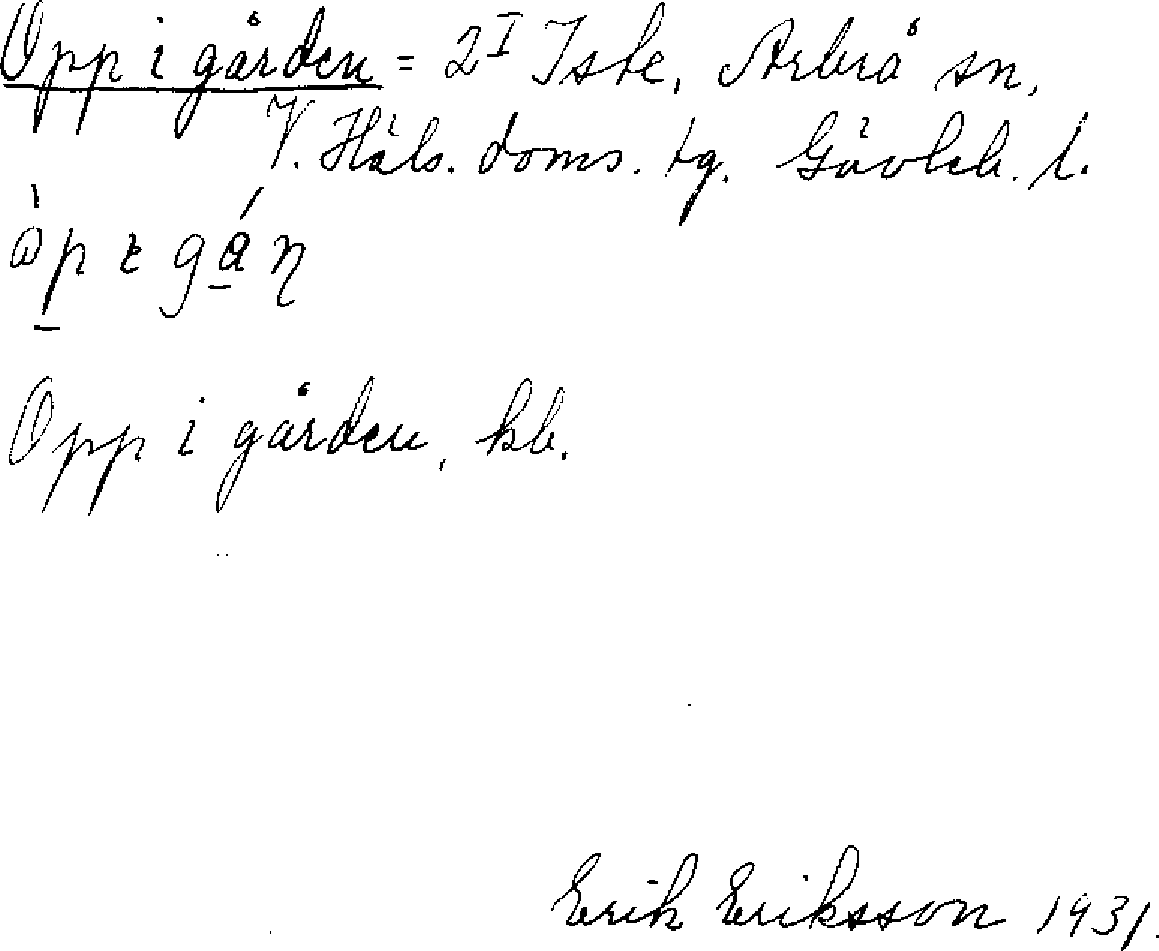 Opp i gården = 2 I Iste, Arbrå sn,
V. Häls. doms. tg. Gävleb. l.
Opp i gården, kb.
Erik Eriksson 1931.